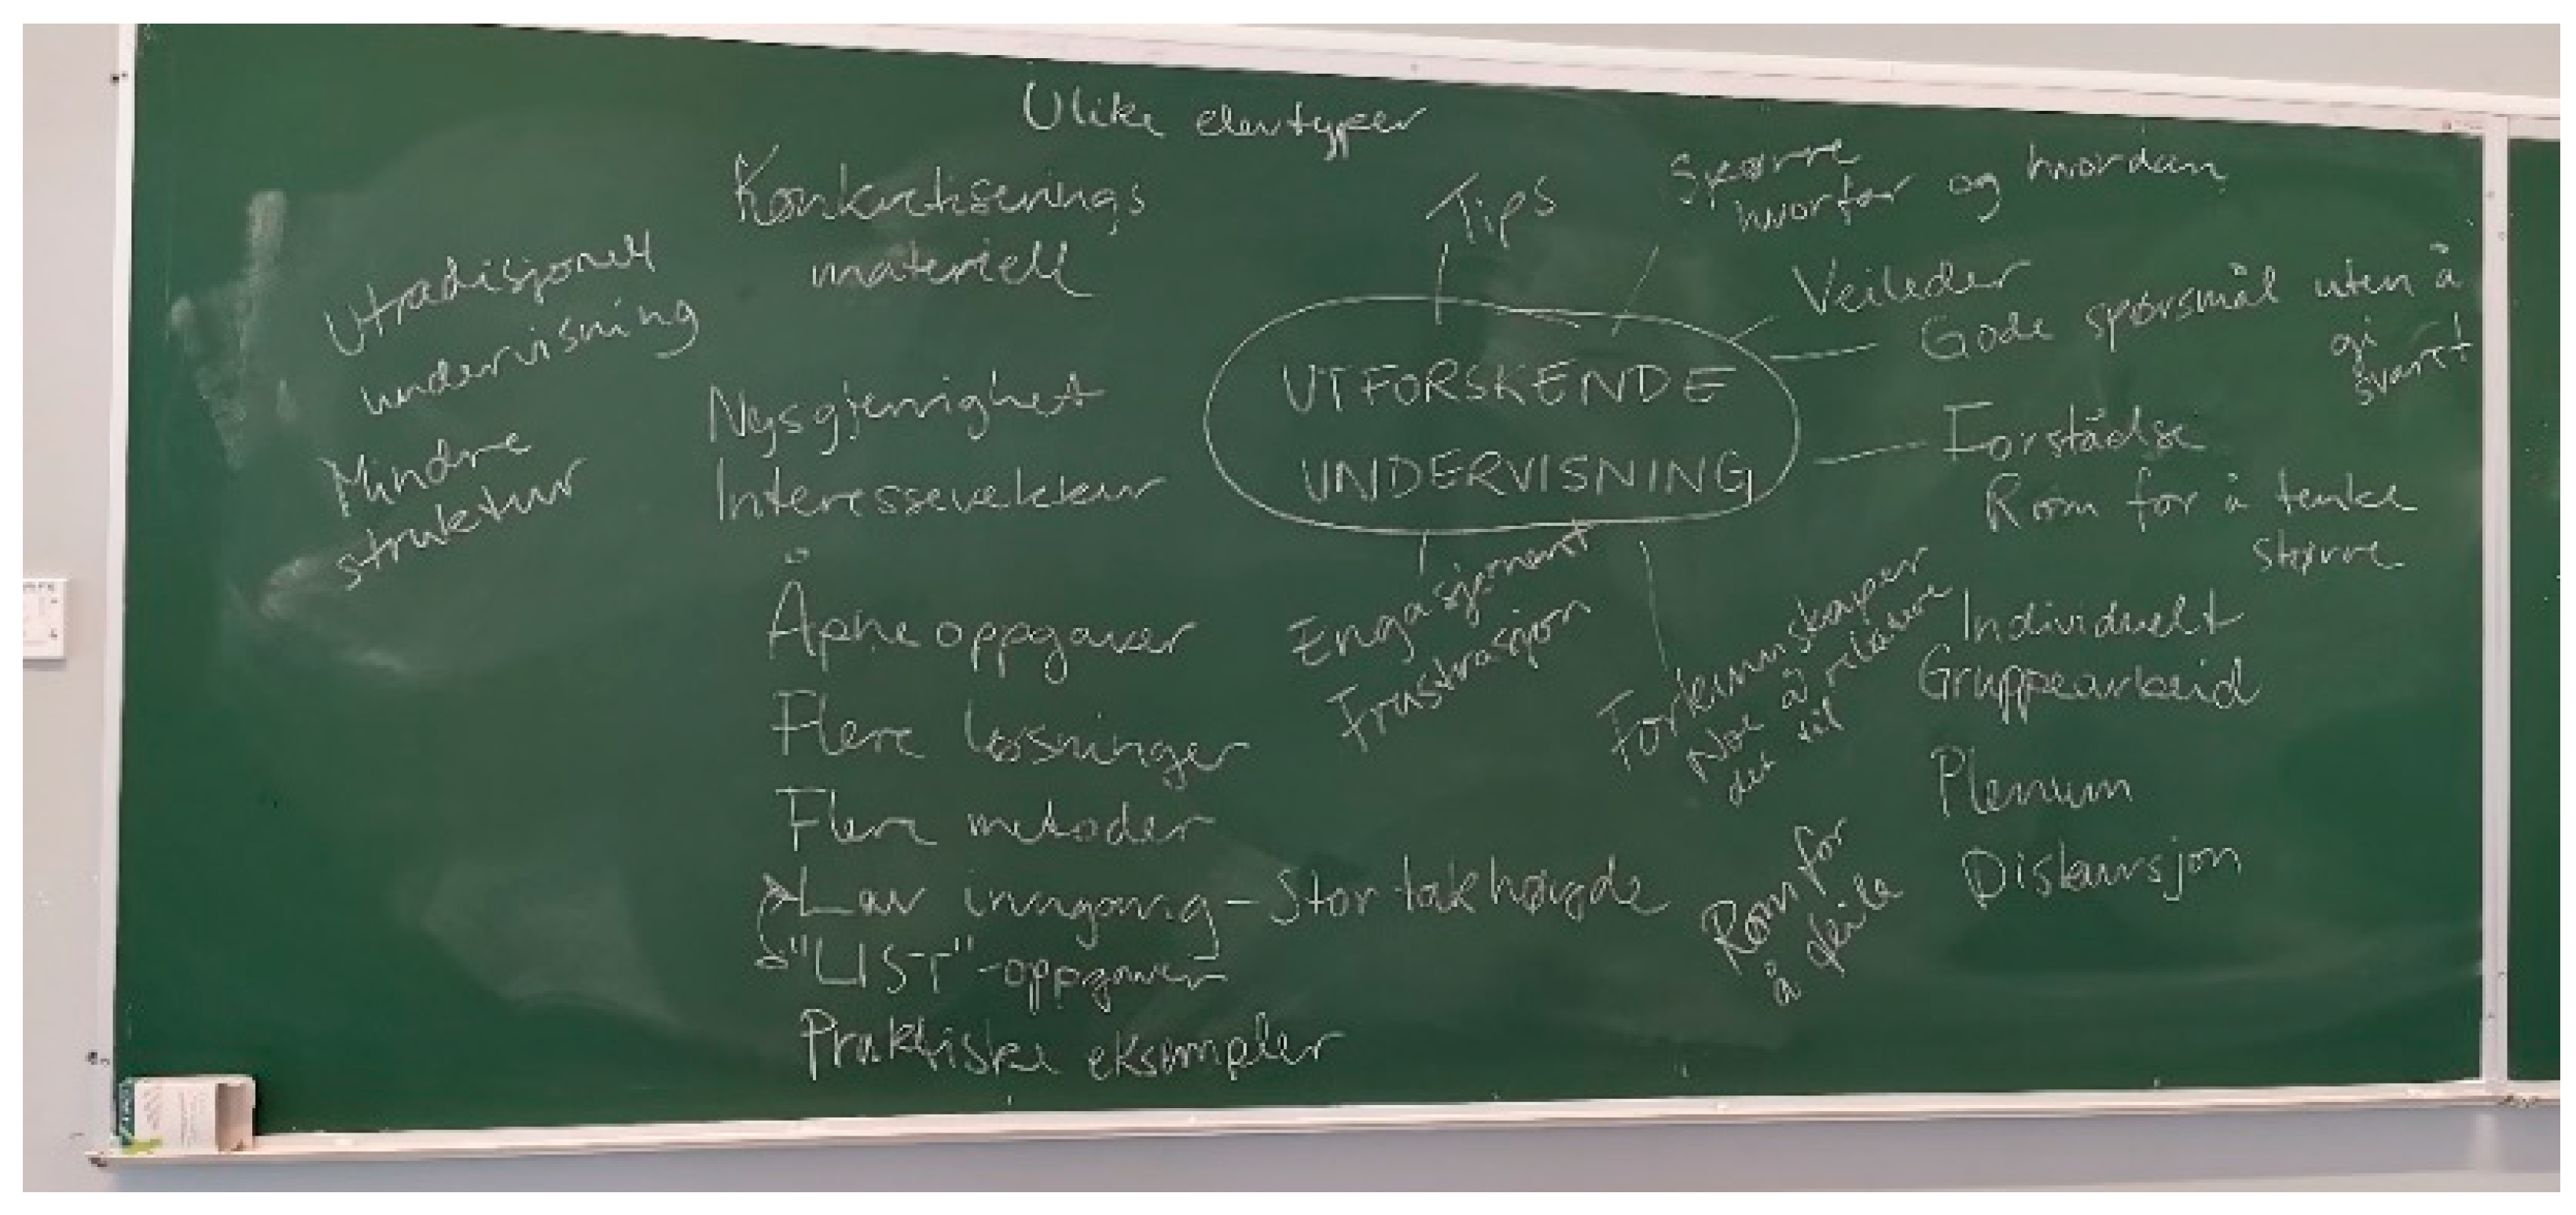 Ulike elevtyper
Konkretiserings
materiell
Utradisjonell
undervisning
Mindre
struktur
Nysgjerrighet
Interessevekkeur
Åpne oppgaver
Flere løsninger
Flere metoder
Lav inngang - Stor takhøyde
"LIST"-oppgaver
Praktiske eksempler
Tips
Spørre
hvorfor og hvordan
Veileder
Gode spørsmål uten å
gi
svaret
UTFORSKENDE
UNDERVISNING
Forståelse
Rom for å tenke
større
Engasjement
Frustrasjon
Forkunnskaper
Noe å relatere
det til
Individuelt
Gruppearbeid
Plenum
Diskusjon
Rom for
å feile